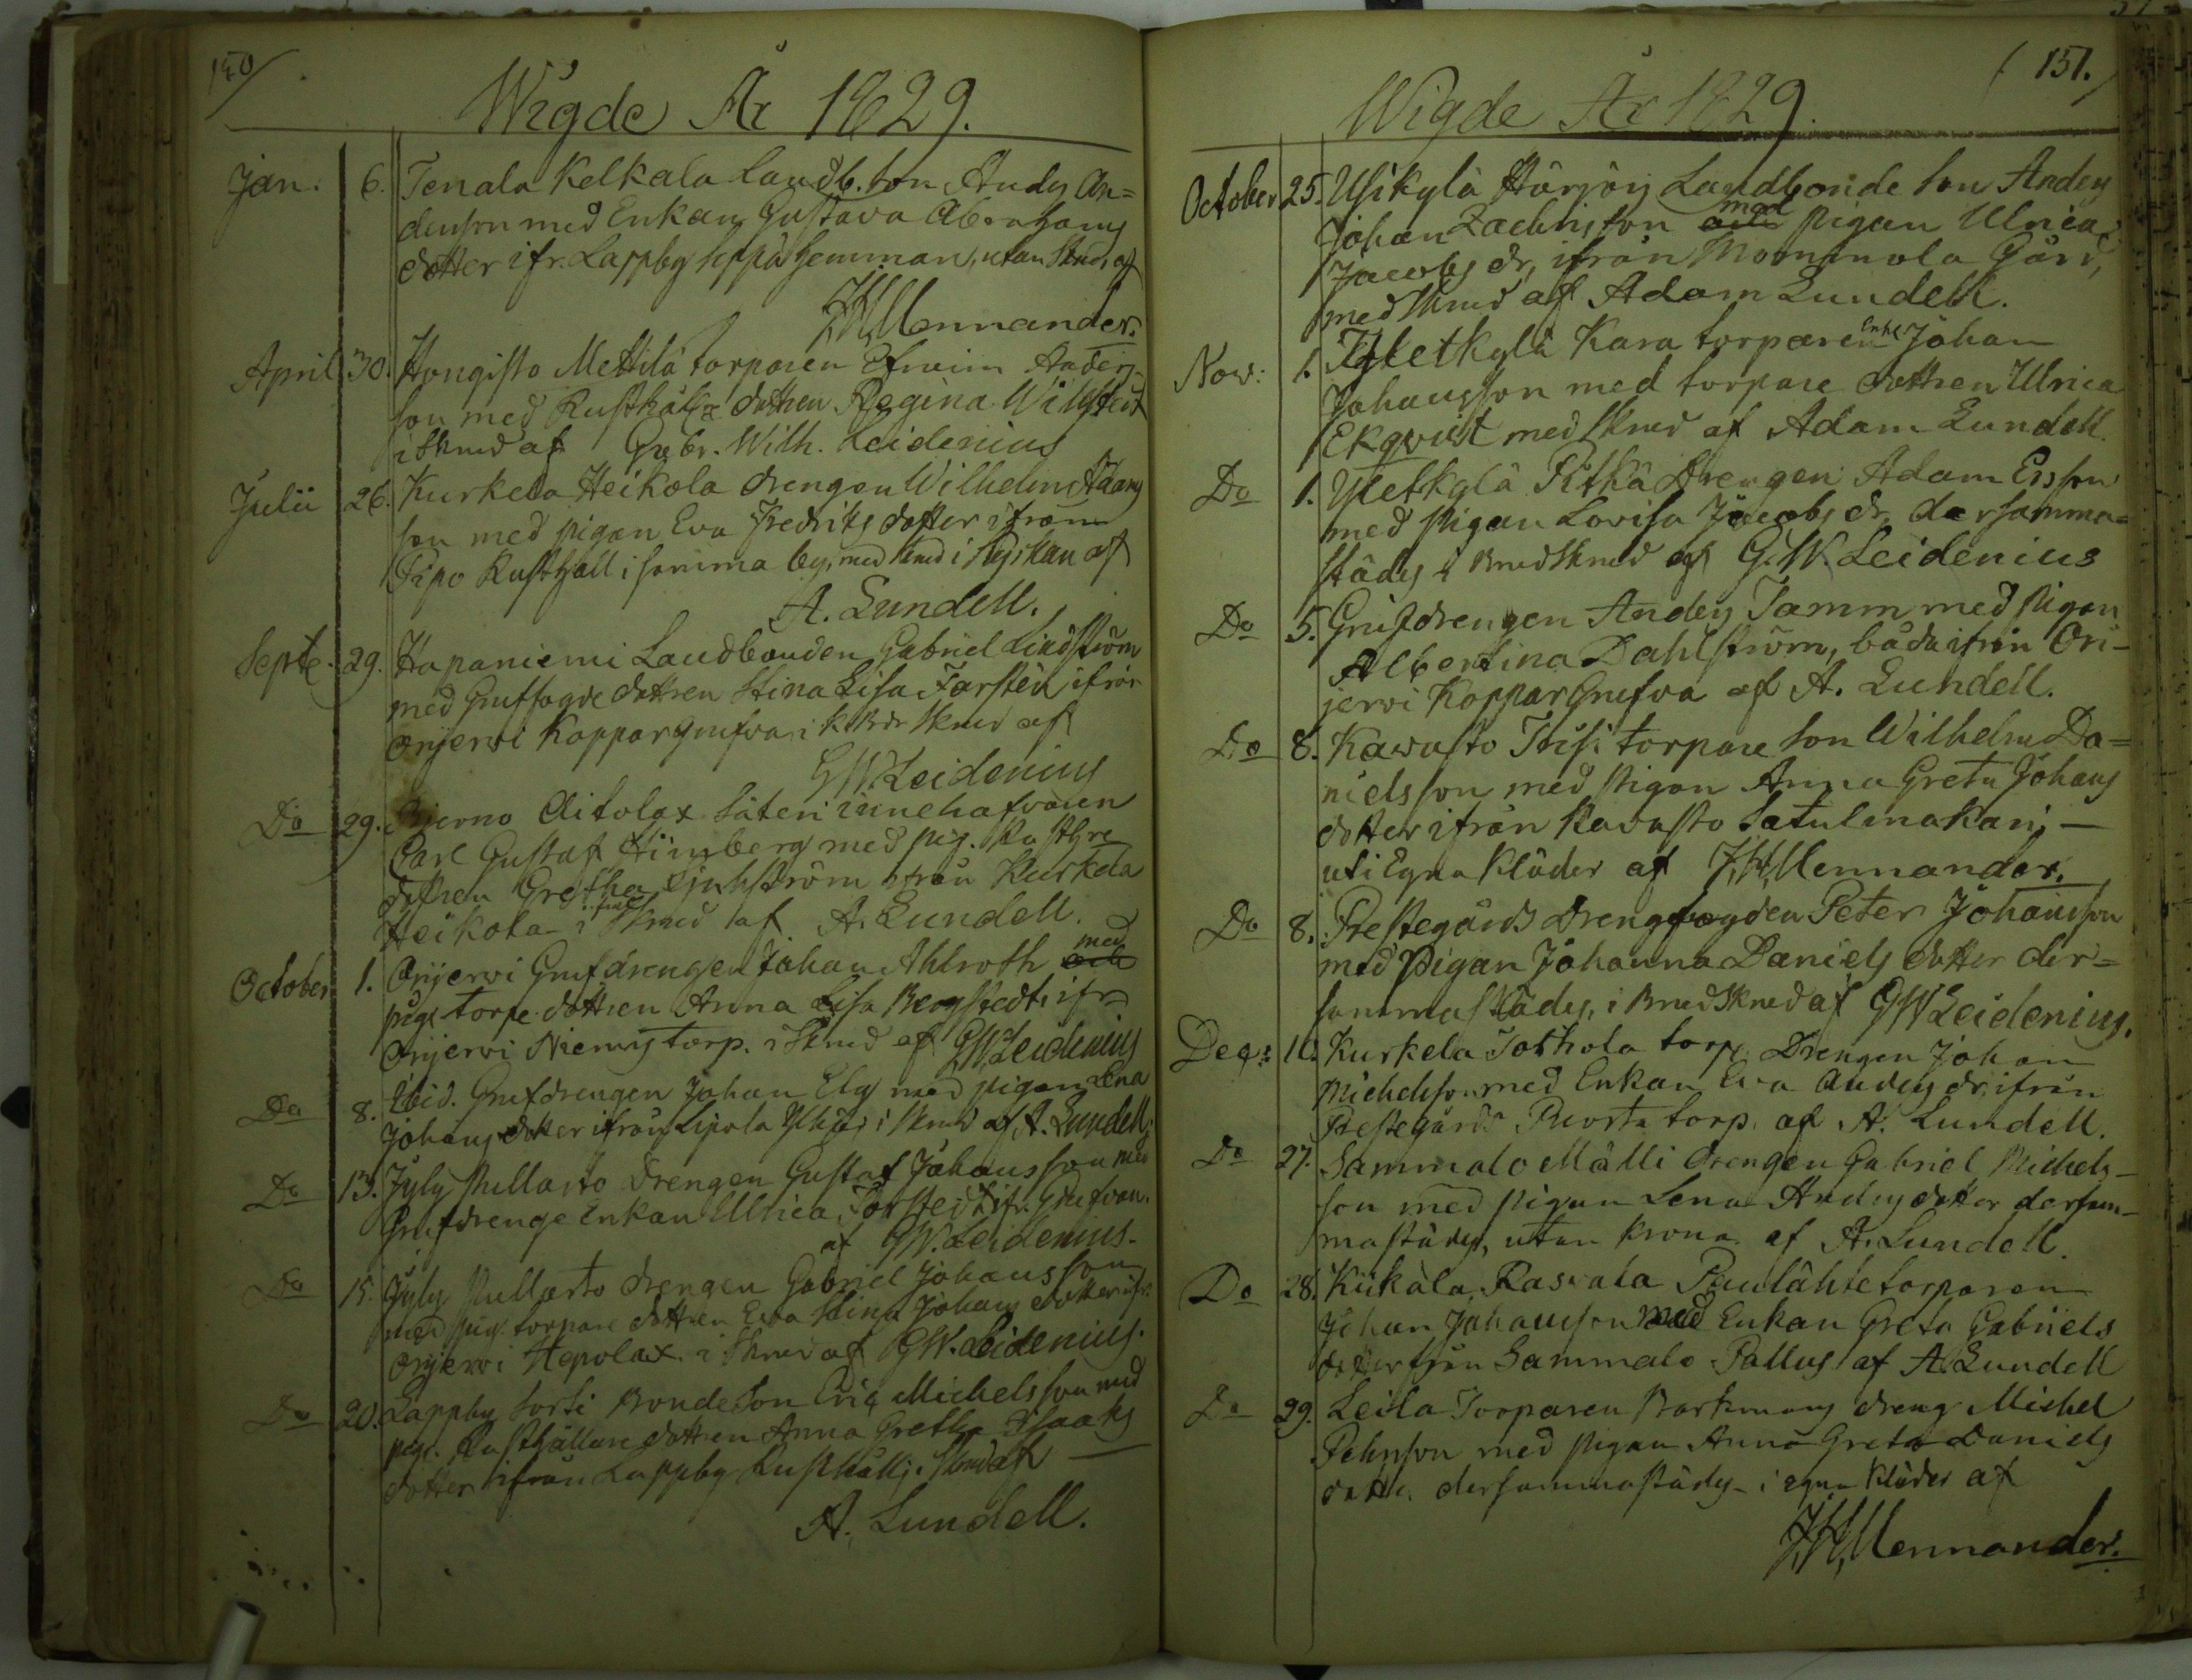 Wigde År 1829.
Jan. 6. Tenala Kelkala Landb. son Anders An=
dersson med Enkan Gustava Abrahams
dotter ifr. Lappby Seppä hemman, utan skrud, af
J.H. Mennander.
April 30. Hongisto Mettilä torparen Efraim Anders-
son med Rusthålls dottren Regina
i skrud af Gabr. Wilh. Leidenius
Julii 26. Kurkela Heikola drengen Wilhelm Adams
son med pigan Eva Fredriks dotter ifrån
Pipo Rusthåll i samma by, med skrud i Kyrkan af
A. Lundell.
Septe. 29. Hapaniemi Landbonden Gabriel Lindström
med Gruffogde dottren Stina Lisa Farstén ifrån
Orijerwi Koppargrufva i skrud af
GW. Leidenius
Do 29. Bjerno Aitolax Säteri innehafvaren
Carl Gustaf med pig. Rusth.re
dottren Gretha ifrån Kurkela
Heikola i full skrud af A. Lundell.
October 1. Orijerwi Grufdrengen Johan Ahlroth med
pig. torpe. dottren Anna Lisa Bergstedt ifr.
Orijerwi torp. i skrud af GW. Leidenius
Do 8. Ibid. Grufdrengen Johan Elg med pigan Lena
Johans dotter ifrån Lipola i skrud af A. Lundell.
Do 13. Jyly Mullasto Drengen Gustaf Johansson med
Grufdrenge Enkan Ulrica ifr. Grufvan.
af GW. Leidenius.
Do 15. Jyly Mullasto drengen Gabriel Johansson
med pig. torpare dottren Eva Stina Johans dotter ifr.
Orijerwi Hepolax i skrud af GW. Leidenius.
Do 20. Lappby Sorti Bondeson Eric Michelsson med
pig. Rusthållare dottren Anna Gretha Isaaks
dotter ifrån Lappby Rusthåll i skrud af —
A. Lundell.
(151.
Wigde År 1829.
October 25. Ysikylä Härjöis Landbonde son Anders
Johan Zachrisson med pigan Ulrica
Jacobs dr, ifrån Mommola Gård,
med skrud af Adam Lundell.
Now: 1. Ysketkylä Kara torparen Enkl. Johan
Johansson med torpare dottren Ulrica
Ekqvist med skrud af Adam Lundell.
Do 1. Ysketkylä Pitkä Drengen Adam Ersson
med pigan Lovisa Jacobs dr, dersamma=
städes i Brudskrud af G.W. Leidenius
Do 5. Grufdrengen Anders Tamm med pigan
Albertina Dahlström, båda ifrån Ori-
jerwi Koppar Grufva af A. Lundell.
Do 8. Kawasto torpare son Wilhelm Da=
nielsson med pigan Anna Greta Johans
dotter ifrån Kavasto Satulmakari, —
uti Egna Kläder af J.H. Mennander.
Do 8. Prestegårds Drengfogden Peter Johansson
med Pigan Johanna Daniels dotter der=
sammastädes, i Brudskrud af GW Leidenius.
Dec: 10. Kurkela Torkola torp. Drengen Johan
Michelsson med Enkan Eva Anders dr, ifrån
Prestegårds torp. af A. Lundell.
Do 27. Sammalo Mälli drengen Gabriel Michels-
son med pigan Lena Anders dotter dersam-
mastädes, utan Krona af A. Lundell.
Do 28. Kiikala, Rasvala torparen
Johan Johansson med Enkan Greta Gabriels
dotter från Sammalo Pallus af A. Lundell
Do 29. Leila Torparen Barkmans dreng Michel
Pehrsson med pigan Anna Greta Daniels
dotter dersammastädes - i egna kläder af
J.H. Mennander.